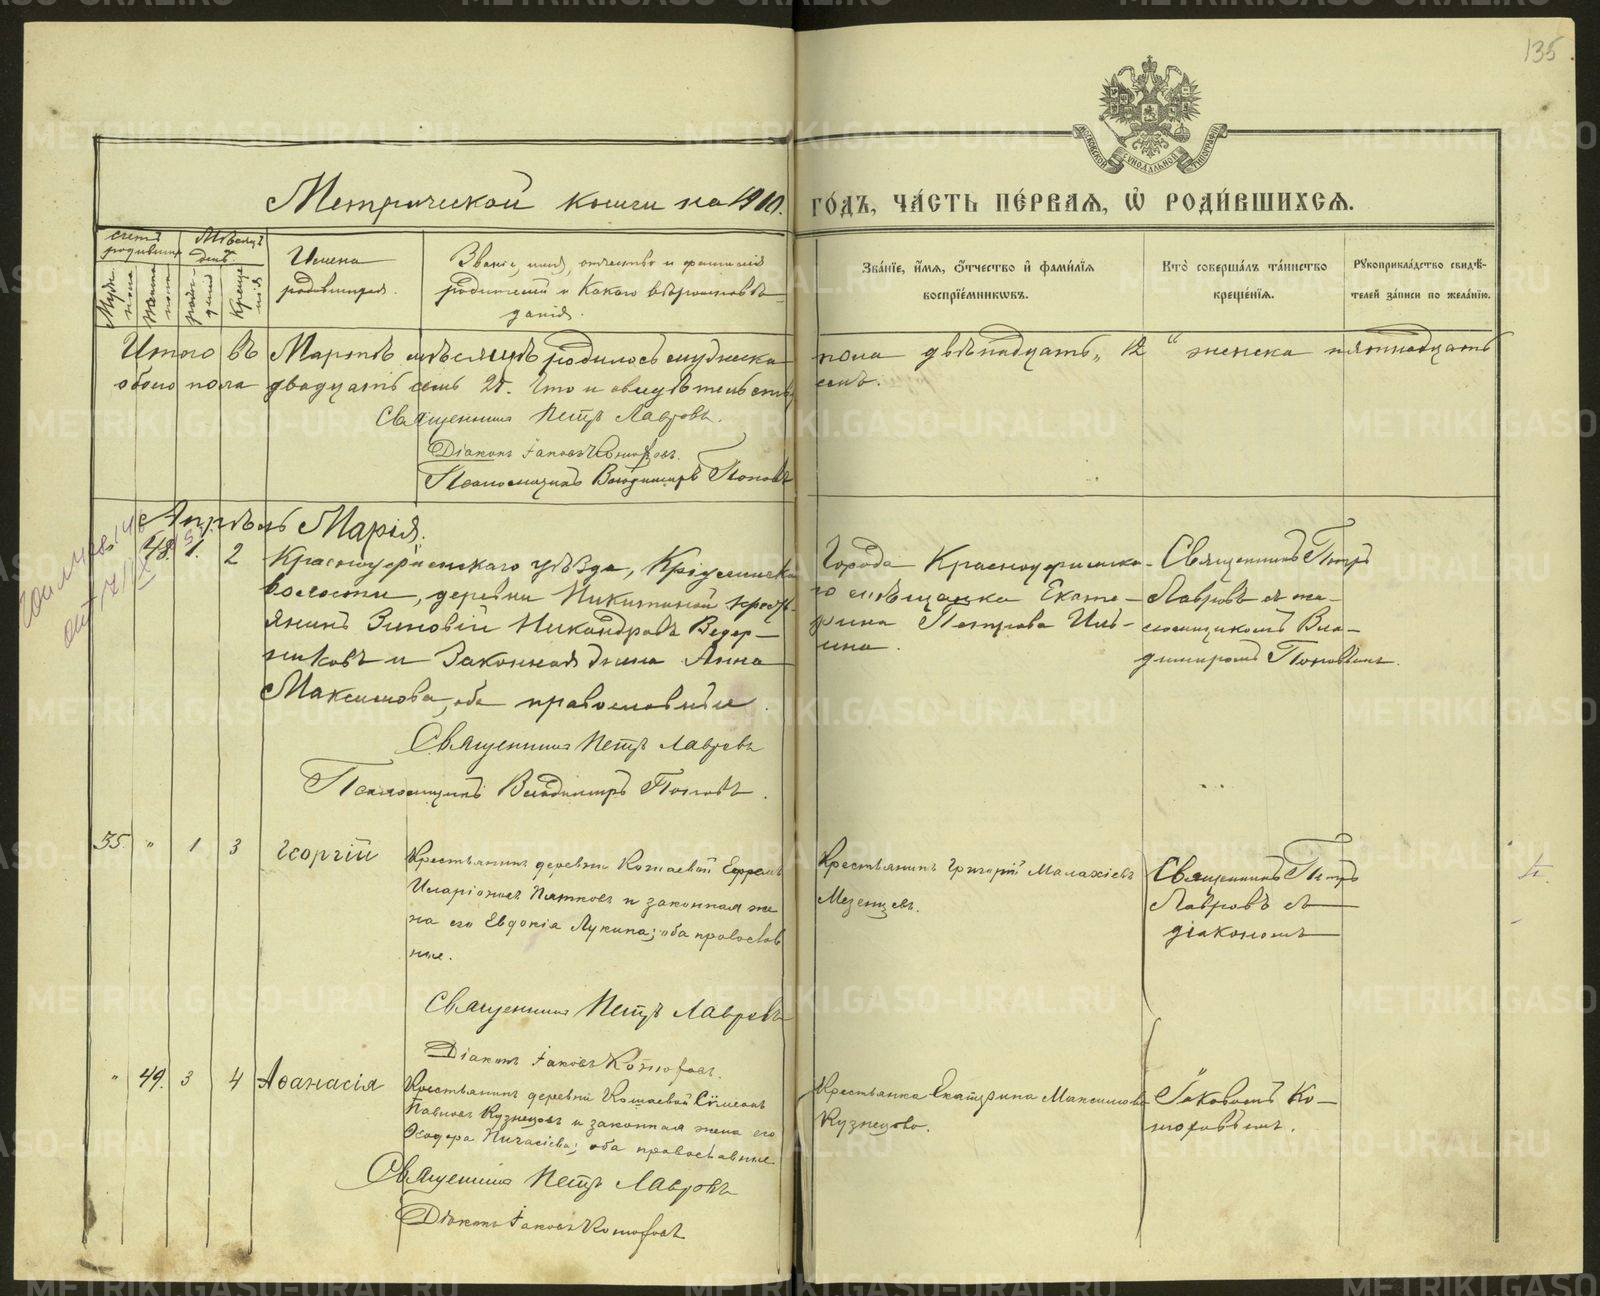 135
МОСКОВСКОЙ СѴНОДАЛЬНОЙ ТИПОГРАФІИ
Метрической книги на 1911. го́дъ, ча́сть пе́рваѧ, ѡ҆ роди́вшихсѧ.
счетъ родившихся
Муж. пола
Женск. пола
Мѣсяцъ день
рожденій
крещенія
Имена родившихся.
Званіе, имя, отчество и фамилія
родителей и какого вѣроисповѣ-
данія.
Зва́нїе, и҆́мѧ, ѻ҆́тчество и҆ фами́лїѧ
воспрїе́мникѡвъ.
Кто̀ соверша́лъ та́инство
креще́нїѧ.
Рꙋкоприкла́дство свидѣ́-
телей за́писи по жела́нїю.
Итого въ Мартѣ мѣсяцѣ родилось мужеска пола двѣнадцать „ 12 “ женска пятнадцать
обоего пола двадцать семь 27. Что и свидѣтельств
Священникъ Петръ Лавровъ.
Діаконъ Іаковъ
Псаломщикъ Владимиръ Поповъ
Апрѣль
48. 1. 2
Марія.
Красноуфимскаго уѣзда,
волости, деревни Никитиной крест-
янинъ Зиновій Никандровъ Ведер-
никовъ и законная жена Анна
Максимова, оба православные
Священникъ Петръ Лавровъ
Псаломщикъ Владимиръ Поповъ.
Города Красноуфимска-
го мѣщанка Екате-
рина Петрова Иль-
ина.
Священникъ Петръ
Лавровъ съ пса-
ломщикомъ Вла-
димиромъ Поповымъ.
35. „ 1 3
Георгій
Крестьянинъ деревни Ефремъ
Иларіоновъ Пятковъ и законная же
на его Евдокія Лукина; оба православ
ные.
Священникъ Петръ Лавровъ
Діаконъ Іаковъ
Крестьянинъ Григорій Малахіевъ
Мезенцевъ.
Священникъ Петръ
Лавровъ съ
діакономъ
„ 49. 3 4
Аѳанасія
Крестьянинъ деревни Сѵмеонъ
Павловъ Кузнецовъ и законная жена его
Ѳеодора оба православные
Священникъ Петръ Лавровъ
Діаконъ Іаковъ
Крестьянка Екатерина Максимова
Кузнецова.
Іаковомъ
METRIKI.GASO-URAL.RU